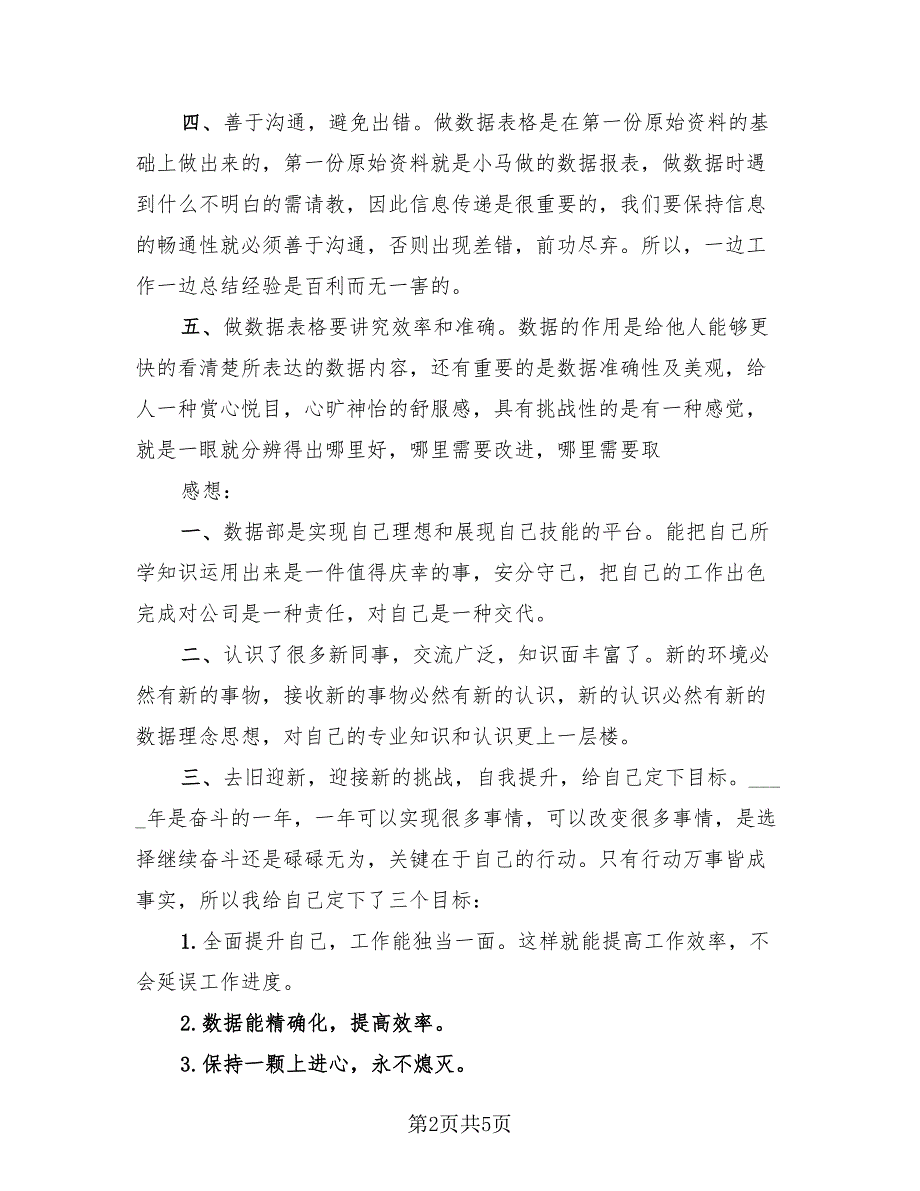 四、善于沟通，避免出错。做数据表格是在第一份原始资料的基
础上做出来的，第一份原始资料就是小马做的数据报表，做数据时遇
到什么不明白的需请教，因此信息传递是很重要的，我们要保持信息
的畅通性就必须善于沟通，否则出现差错，前功尽弃。所以，一边工
作一边总结经验是百利而无一害的。
五、做数据表格要讲究效率和准确。数据的作用是给他人能够更
快的看清楚所表达的数据内容，还有重要的是数据准确性及美观，给
人一种赏心悦目，心旷神怡的舒服感，具有挑战性的是有一种感觉，
就是一眼就分辨得出哪里好，哪里需要改进，哪里需要取
感想：
一、数据部是实现自己理想和展现自己技能的平台。能把自己所
学知识运用出来是一件值得庆幸的事，安分守己，把自己的工作出色
完成对公司是一种责任，对自己是一种交代。
二、认识了很多新同事，交流广泛，知识面丰富了。新的环境必
然有新的事物，接收新的事物必然有新的认识，新的认识必然有新的
数据理念思想，对自己的专业知识和认识更上一层楼。
三、去旧迎新，迎接新的挑战，自我提升，给自己定下目标。___
_年是奋斗的一年，一年可以实现很多事情，可以改变很多事情，是选
择继续奋斗还是碌碌无为，关键在于自己的行动。只有行动万事皆成
事实，所以我给自己定下了三个目标：
1.全面提升自己，工作能独当一面。这样就能提高工作效率，不
会延误工作进度。
2.数据能精确化，提高效率。
3.保持一颗上进心，永不熄灭。
第2页共5页